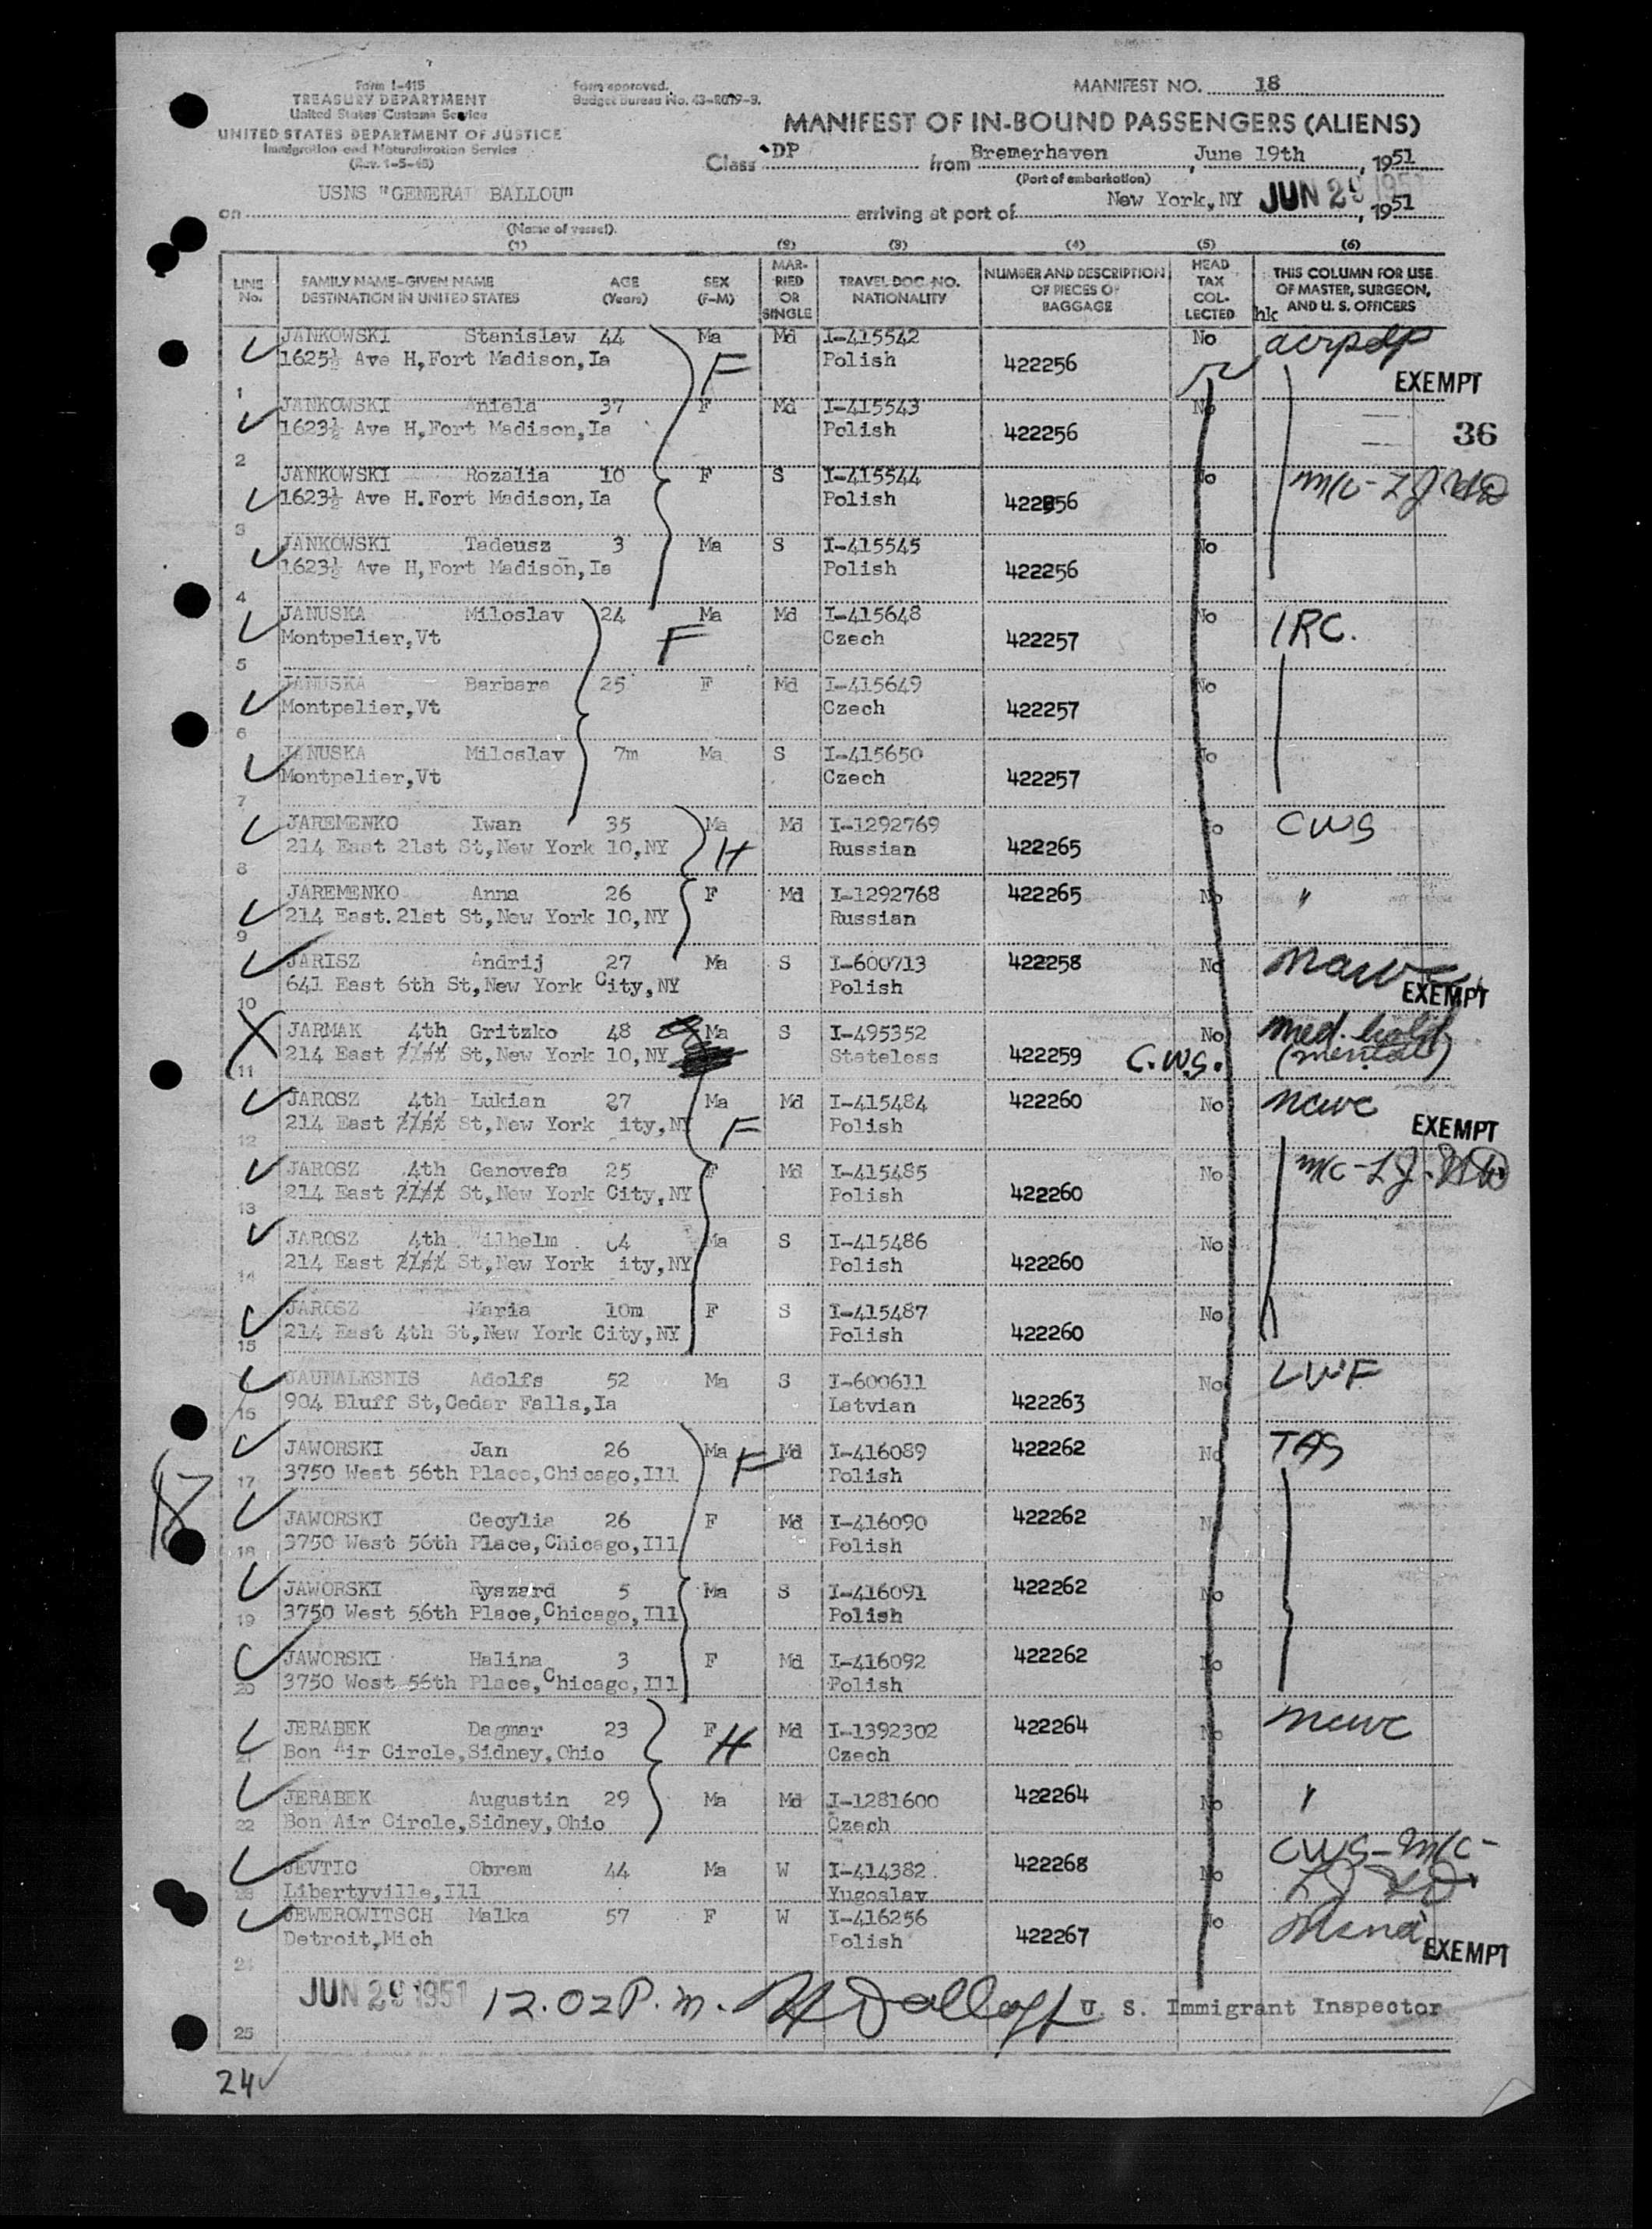 Form I-415
TREASURY DEPARTMENT
United States Customs Service
UNITED STATES DEPARTMENT OF JUSTICE
Immigration and Naturalization Service
(Rev. 1-5-48)
Form approved.
Budget Bureau No. 43-R019-3.
MANIFEST NO. 18
MANIFEST OF IN-BOUND PASSENGERS (ALIENS)
Class DP from Bremerhaven, June 19th, 1951
(Port of embarkation)
on USNS "GENERAL BALLOU" arriving at port of New York, NY JUN 29 1951, 1951
(Name of vessel).
(1) (2) (3) (4) (5) (6)
LINE No. FAMILY NAME-GIVEN NAME DESTINATION IN UNITED STATES AGE (Years) SEX (F-M) MARRIED OR SINGLE TRAVEL DOC. NO. NATIONALITY NUMBER AND DESCRIPTION OF PIECES OF BAGGAGE HEAD TAX COLLECTED THIS COLUMN FOR USE OF MASTER, SURGEON, AND U. S. OFFICERS
hk
JANKOWSKI Stanislaw 44 Ma Md I-415542 No
1625½ Ave H, Fort Madison, Ia F Polish 422256
EXEMPT
1
JANKOWSKI Aniela 37 F Md I-415543 No
1623½ Ave H, Fort Madison, Ia Polish 422256 36
2
JANKOWSKI Rozalia 10 F S I-415544 No
1623½ Ave H. Fort Madison, Ia Polish 422256
3
JANKOWSKI Tadeusz 3 Ma S I-415545 No
1623½ Ave H, Fort Madison, Ia Polish 422256
4
JANUSKA Miloslav 24 Ma Md I-415648 No IRC.
Montpelier, Vt F Czech 422257
5
JANUSKA Barbara 25 F Md I-415649 No
Montpelier, Vt Czech 422257
6
JANUSKA Miloslav 7m Ma S I-415650 No
Montpelier, Vt Czech 422257
7
JAREMENKO Iwan 35 Ma Md I-1292769 No CWS
214 East 21st St, New York 10, NY H Russian 422265
8
JAREMENKO Anna 26 F Md I-1292768 422265 No "
214 East. 21st St, New York 10, NY Russian
9
JARISZ Andrij 27 Ma S I-600713 422258 No
641 East 6th St, New York City, NY Polish EXEMPT
10
JARMAK 4th Gritzko 48 Ma S I-495352 No med. hold
214 East 21st St, New York 10, NY Stateless 422259 C.W.S. (mental)
11
JAROSZ 4th Lukian 27 Ma Md I-415484 422260 No ncwc
214 East 21st St, New York ity, NY F Polish EXEMPT
12
JAROSZ 4th Genovefa 25 F Md I-415485 No
214 East 21st St, New York City, NY Polish 422260
13
JAROSZ 4th Wilhelm 4 Ma S I-415486 No
214 East 21st St, New York ity, NY Polish 422260
14
JAROSZ Maria 10m F S I-415487 No
214 East 4th St, New York City, NY Polish 422260
15
JAUNALKSNIS Adolfs 52 Ma S I-600611 No LWF
904 Bluff St, Cedar Falls, Ia Latvian 422263
16
JAWORSKI Jan 26 Ma F Md I-416089 422262 No
3750 West 56th Place, Chicago, Ill Polish
17
JAWORSKI Cecylia 26 F Md I-416090 422262 No
3750 West 56th Place, Chicago, Ill Polish
18
JAWORSKI Ryszard 5 Ma S I-416091 422262 No
3750 West 56th Place, Chicago, Ill Polish
19
JAWORSKI Halina 3 F Md I-416092 422262 No
3750 West 56th Place, Chicago, Ill Polish
20
JERABEK Dagmar 23 F Md I-1392302 422264 No ncwc
Bon Air Circle, Sidney, Ohio H Czech
21
JERABEK Augustin 29 Ma Md I-1281600 422264 No "
Bon Air Circle, Sidney, Ohio Czech
22
JEVTIC Obrem 44 Ma W I-414382 422268 No CWS-M/C-
Libertyville, Ill Yugoslav
23
JEWEROWITSCH Malka 57 F W I-416256 No
Detroit, Mich Polish 422267 EXEMPT
24
JUN 29 1951 12.02 P.m. U. S. Immigrant Inspector
25
24